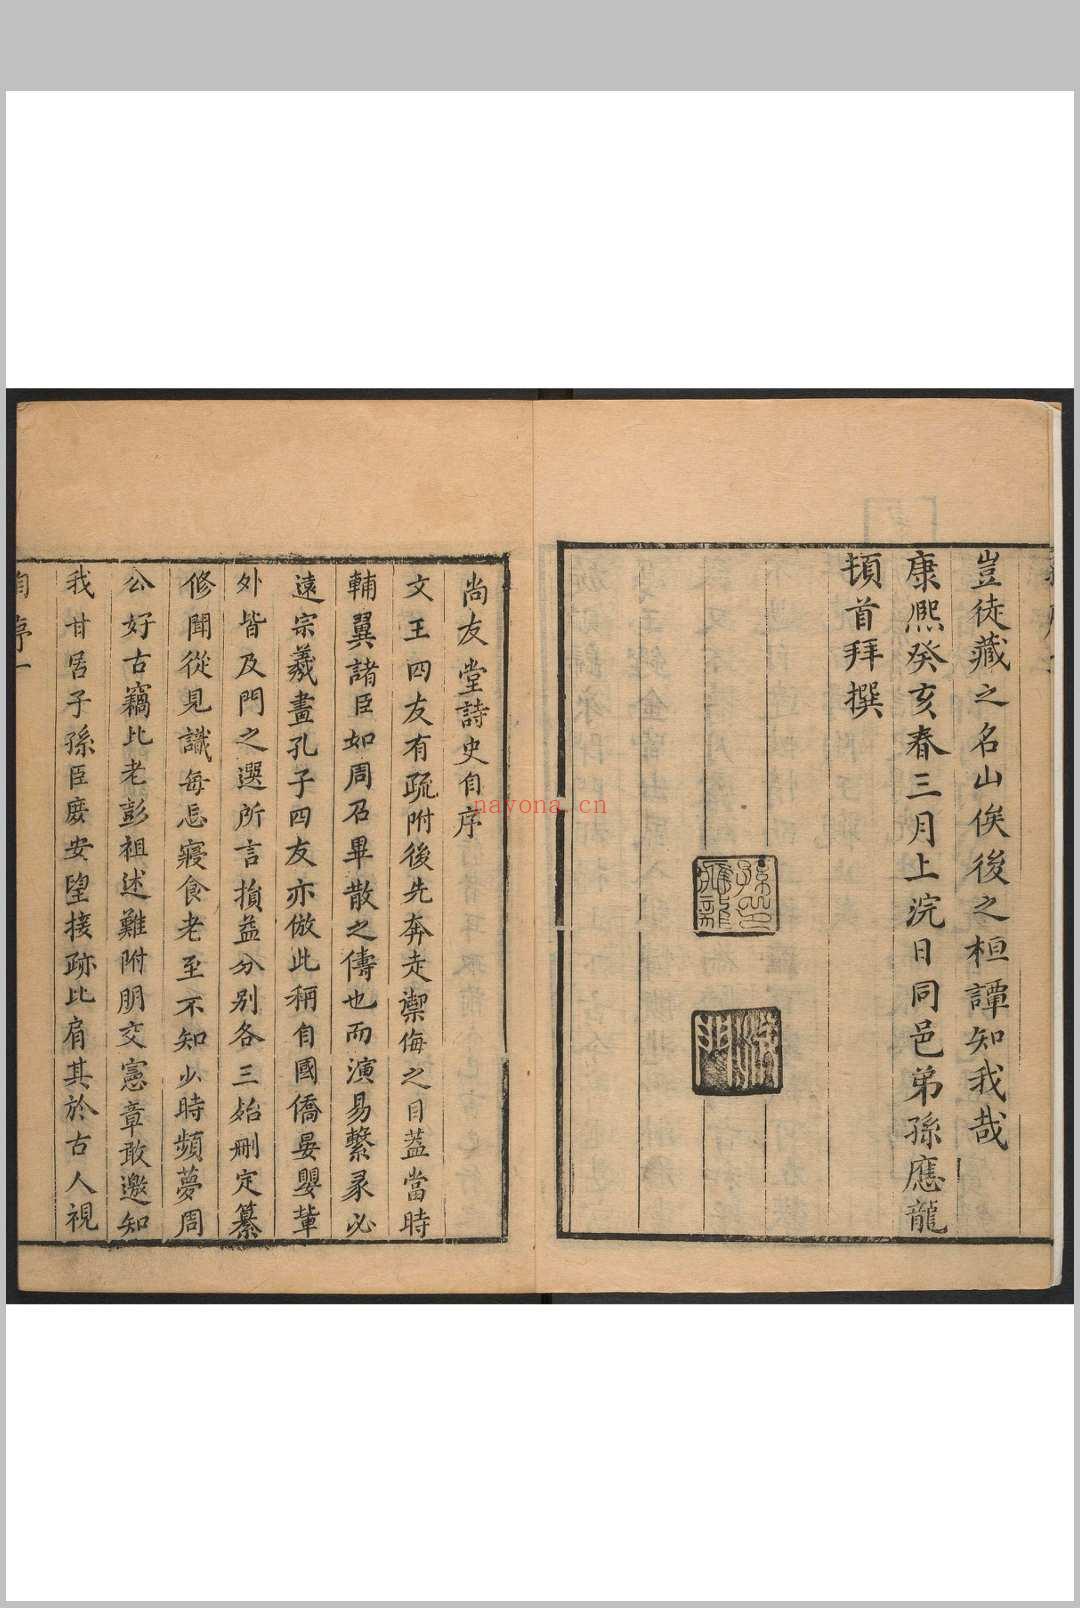 豈徒藏之名山俟後之桓譚知我哉
康熈癸亥春三月上浣日同邑弟孫應龍
頓首拜撰
孫印應龍
尚友堂詩史自序
文王四友有疏附後先奔走禦侮之目葢當時
輔翼諸臣如周召畢散之儔也而演易繫彖必
遠宗羲畫孔子四友亦倣此稱自國僑晏嬰輩
外皆及門之選所言損益分别各三始刪定纂
修聞從見識每忘寢食老至不知少時頻夢周
公好古竊比老彭祖述難附朋交憲章敢邀知
我甘居子孫臣庶安望接跡比肩其於古人視
自序一
nayona.cn